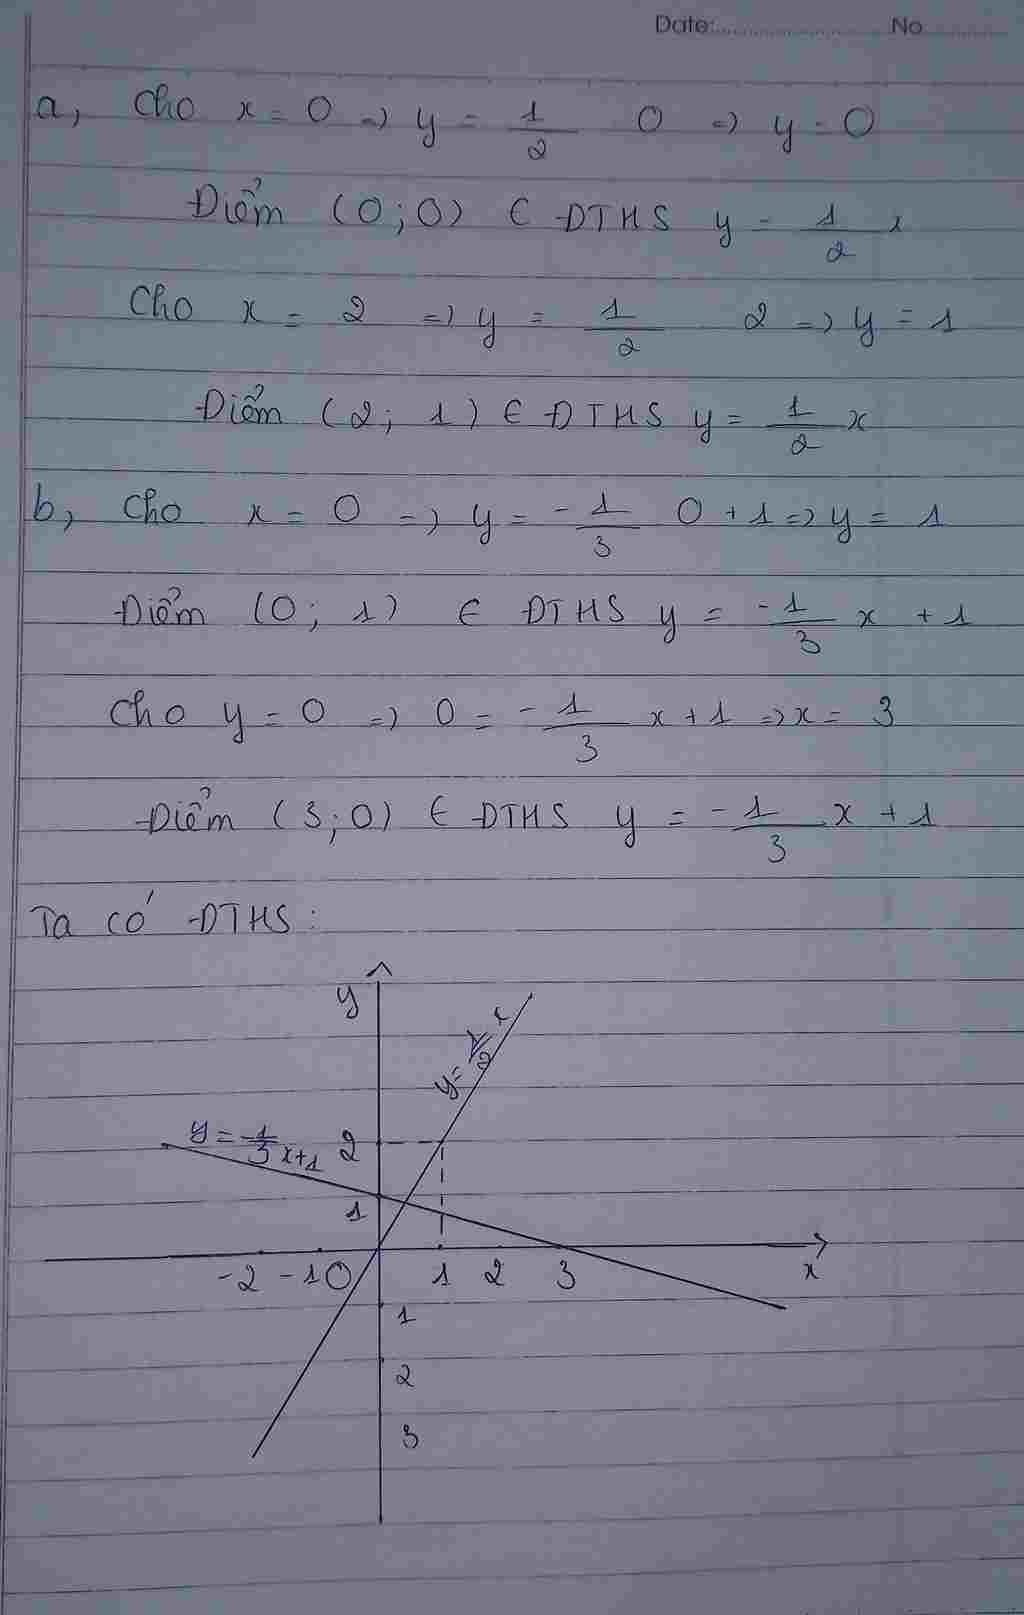 Date: No
a, Cho x = 0 => y = 1/2 0 => y = 0
Điểm (0;0) ∈ ĐTHS y = 1/2 x
Cho x = 2 => y = 1/2 2 => y = 1
Điểm (2; 1) ∈ ĐTHS y = 1/2 x
b, Cho x = 0 => y = -1/3 0 + 1 => y = 1
Điểm (0; 1) ∈ ĐTHS y = -1/3 x + 1
Cho y = 0 => 0 = -1/3 x + 1 => x = 3
Điểm (3;0) ∈ ĐTHS y = -1/3 x + 1
Ta có ĐTHS:
y
y = 1/2 x
y = -1/3 x+1
2
1
-2 -1 0 1 2 3 x
1
2
3